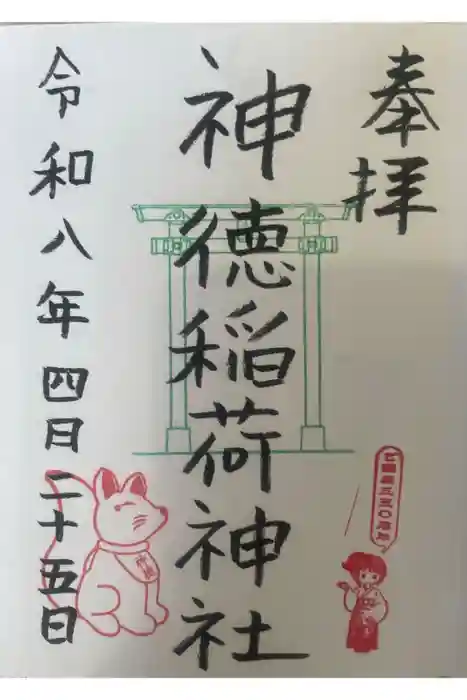 奉拝
神徳稲荷神社
令和八年四日二十五日